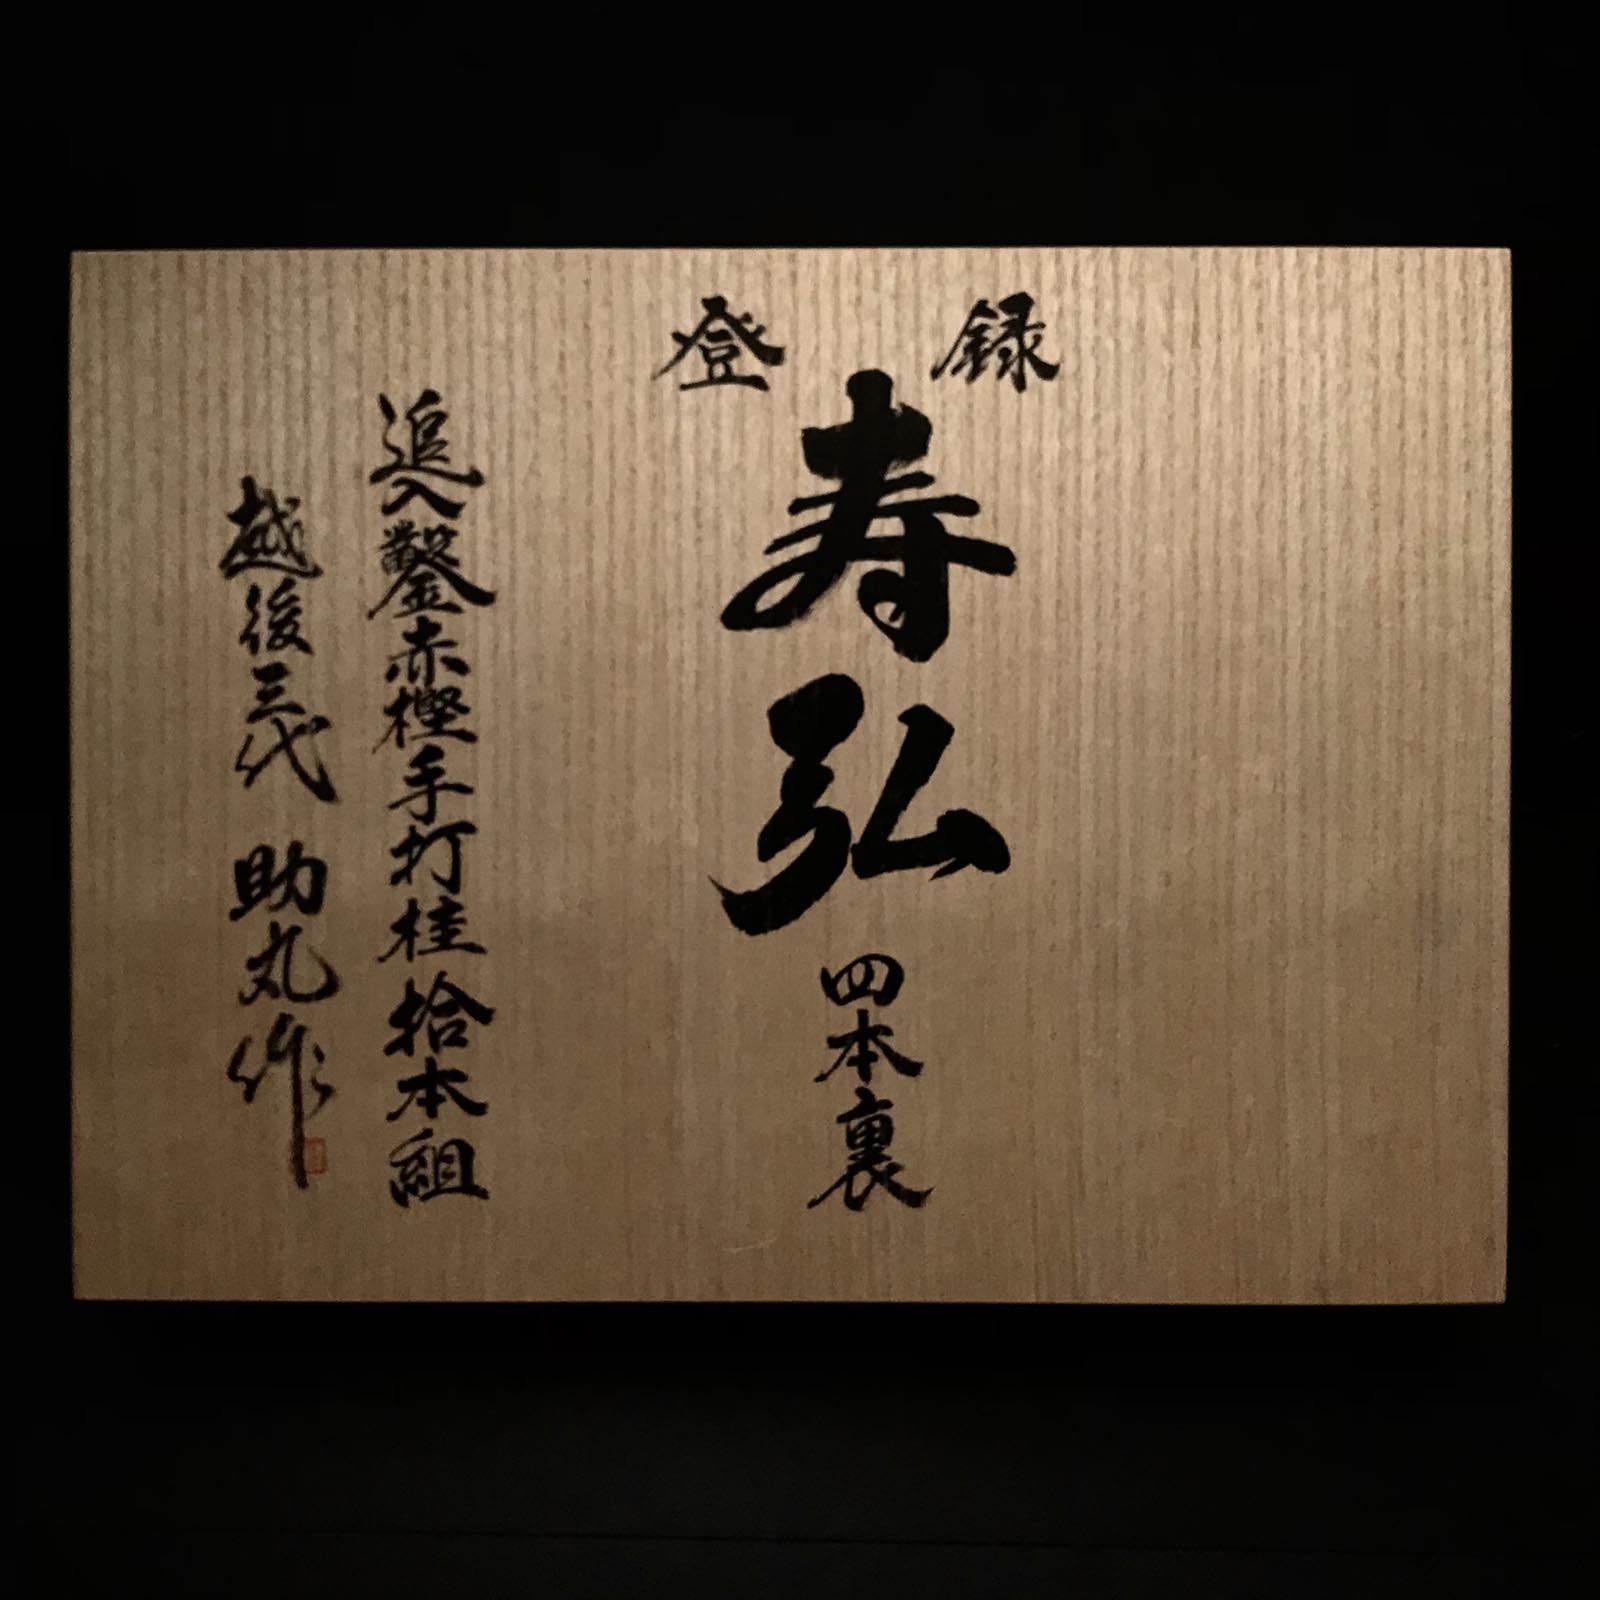 登録
寿弘
四本裏
追入鑿赤樫手打桂拾本組
越後三代 助丸作